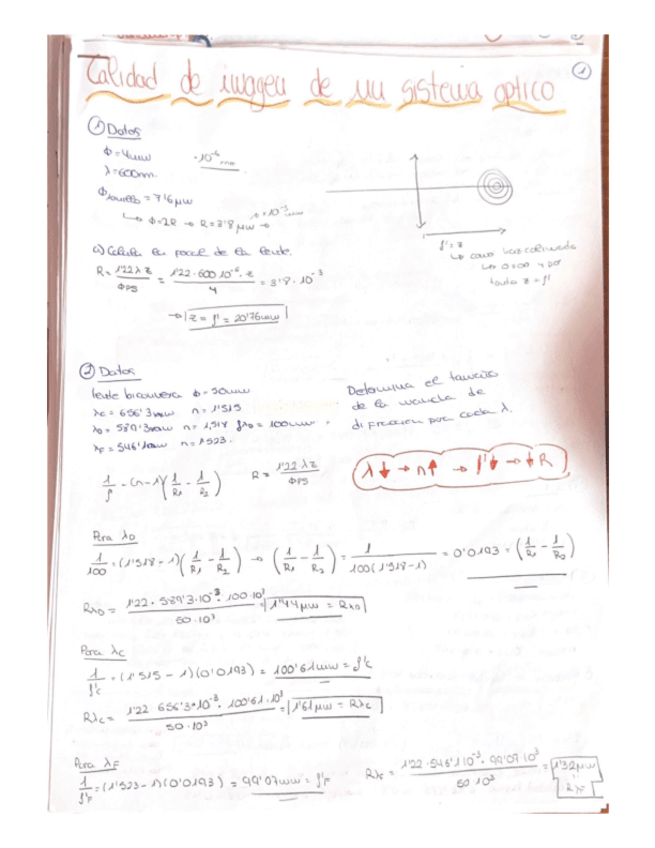 Calidad de imagen de un sistema optico
①
① Datos
ϕ = 4mm · 10⁻⁶ mm
λ = 600nm.
ϕanillo = 7'6 μm
↳ ϕ = 2R → R = 3'8 μm → · 10⁻³ mm
f' = z
↳ como haz colimado
↳ o=∞ y por
tanto z = f'
a) Calcula la focal de la lente.
R = 1'22 λ z / ϕPS = 1'22 · 600 · 10⁻⁶ · z / 4 = 3'8 · 10⁻³
→ z = f' = 20'76mm
② Datos
lente biconvexa ϕ = 50mm
λc = 656'3nm n = 1'515
λD = 589'3nm n = 1,518 fλD = 100mm
λF = 546'1nm n = 1'523.
Determina el tamaño
de la mancha de
difracción para cada λ.
1/f' = (n-1)(1/R₁ - 1/R₂) R = 1'22 λ z / ϕPS
λ↓ → n↑ → f'↓ → ↓R
Para λD
1/100 = (1'518 - 1)(1/R₁ - 1/R₂) → (1/R₁ - 1/R₂) = 1 / 100(1'518-1) = 0'0193 = (1/R₁ - 1/R₂)
RλD = 1'22 · 589'3 · 10⁻³ · 100 · 10³ / 50 · 10³ = 1'44 μm = RλD
Para λc
1/f'c = (1'515 - 1)(0'0193) = 100'61mm = f'c
Rλc = 1'22 · 656'3 · 10⁻³ · 100'61 · 10³ / 50 · 10³ = 1'61 μm = Rλc
Para λF
1/f'F = (1'523 - 1)(0'0193) = 99'07mm = f'F
RλF = 1'22 · 546'1 · 10⁻³ · 99'07 · 10³ / 50 · 10³ = 1'32 μm
RλF